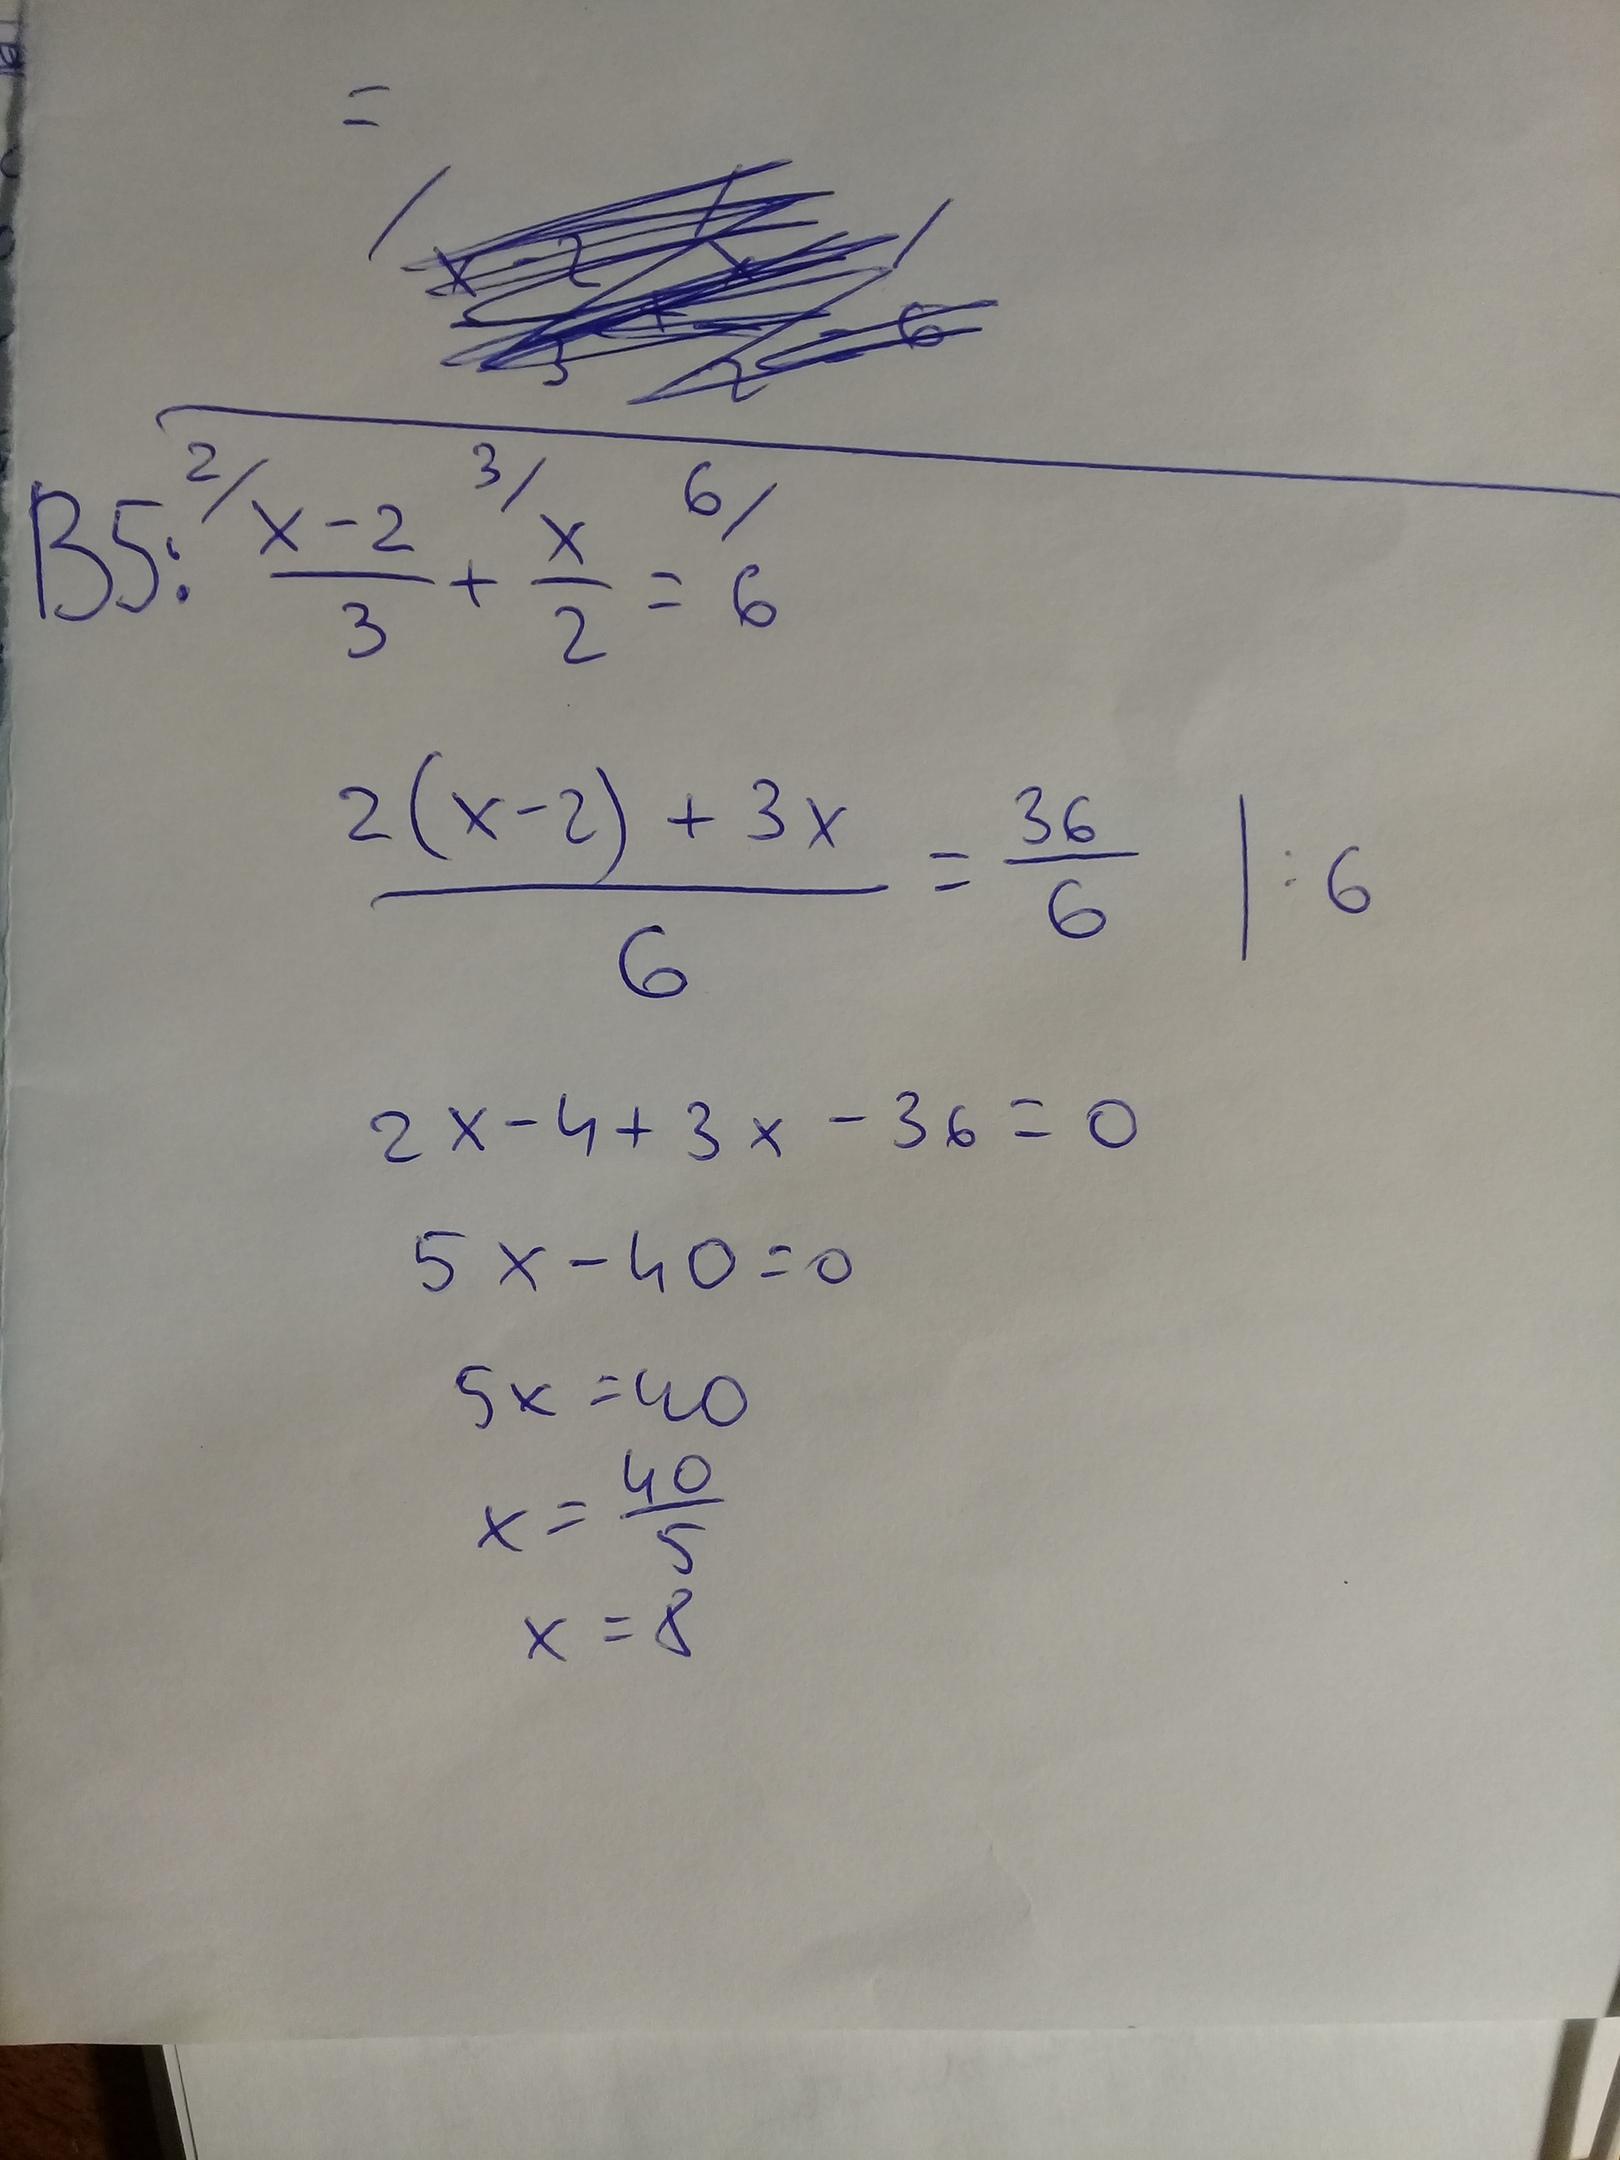 =
B5: 2/ x-2/3 + 3/ x/2 = 6/ 6
2(x-2) + 3x / 6 = 36/6 | : 6
2x-4+3x-36=0
5x-40=0
5x=40
x=40/5
x=8